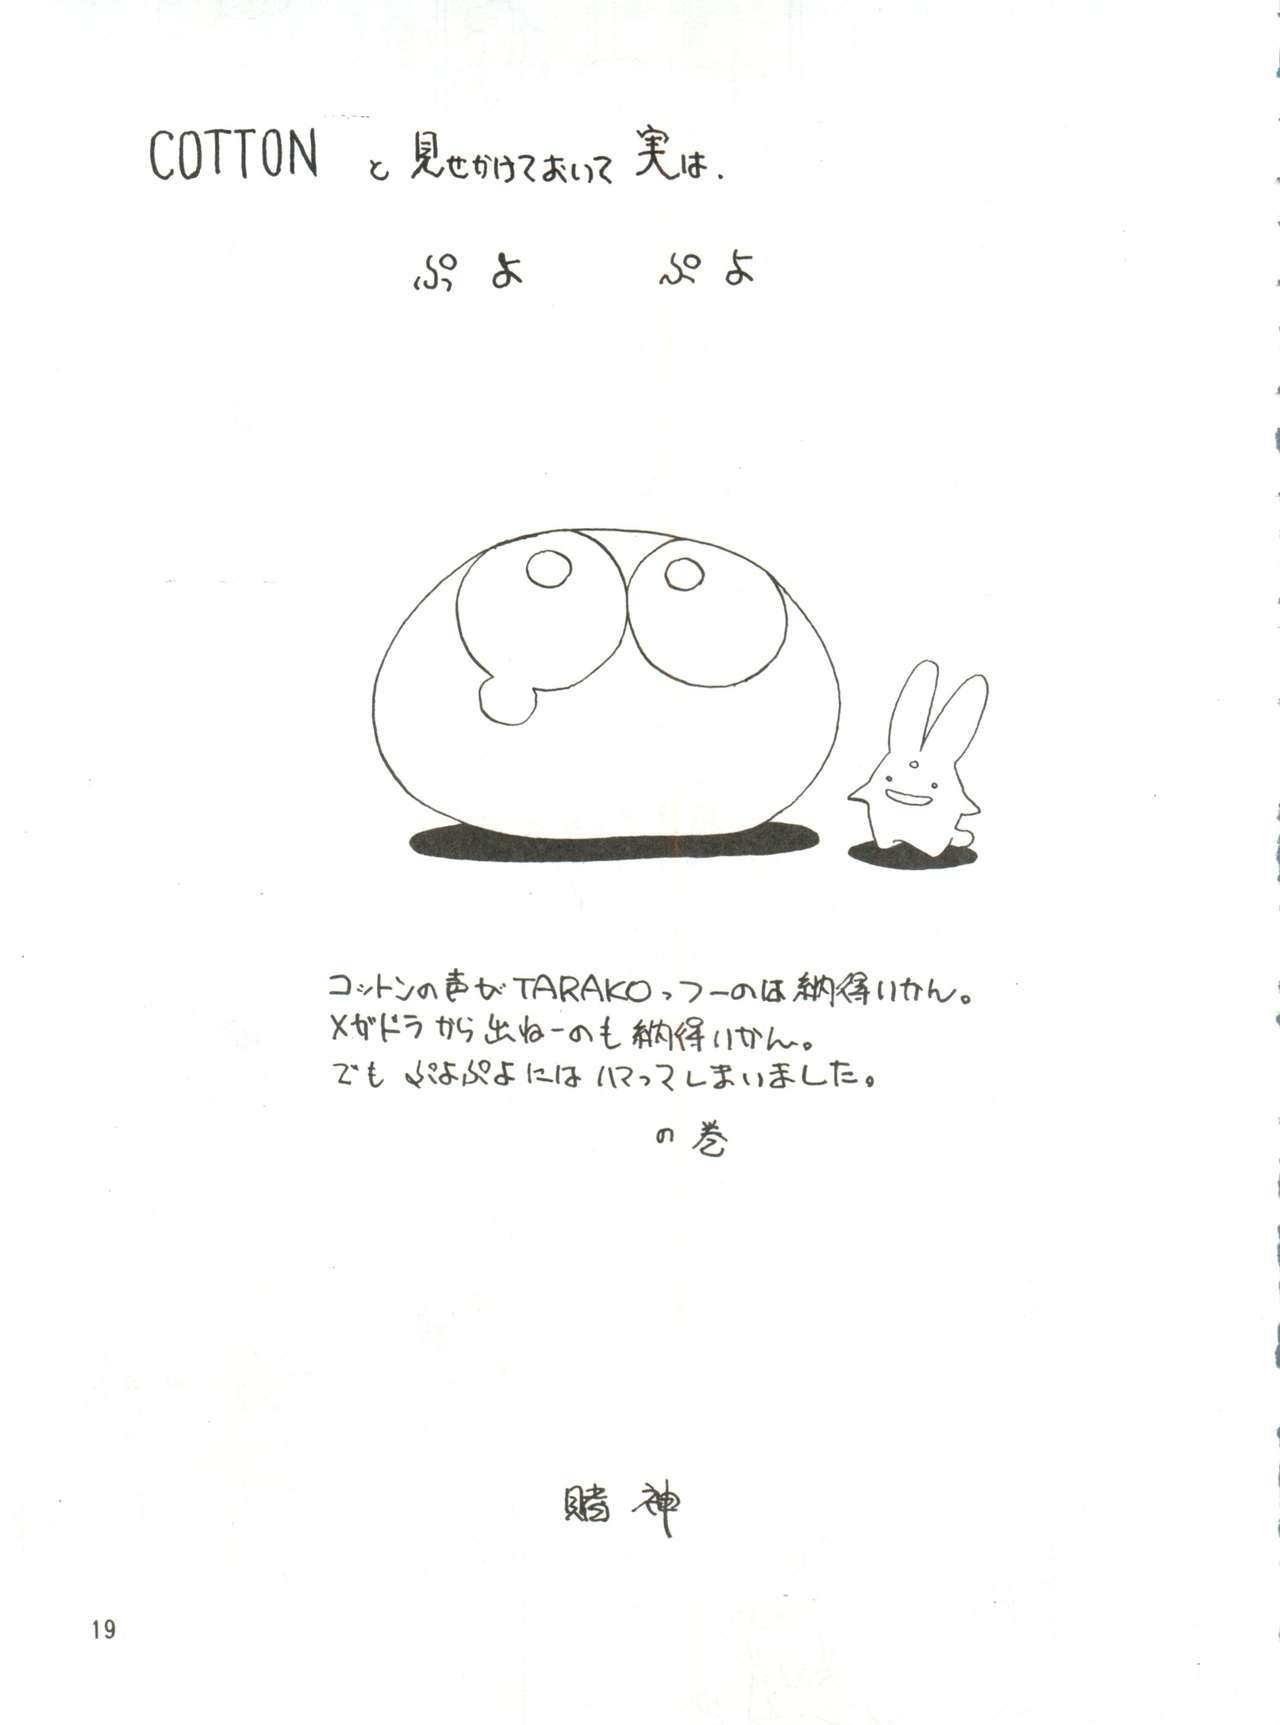 COTTON と見せかけておいて実は.
ぷよ ぷよ
コットンの声がTARAKOっつーのは納得いかん。
メガドラから出ねーのも納得いかん。
でも ぷよぷよにはハマってしまいました。
の巻
賭神
19